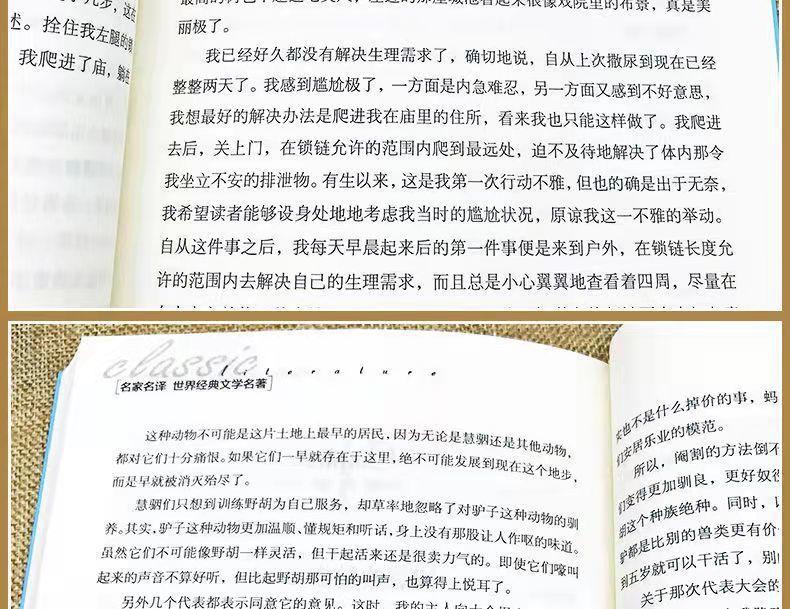 几步，这在
述。拴住我左腿的
我爬进了庙，躺在
丽极了。
我已经好久都没有解决生理需求了，确切地说，自从上次撒尿到现在已经
整整两天了。我感到尴尬极了，一方面是内急难忍，另一方面又感到不好意思，
我想最好的解决办法是爬进我在庙里的住所，看来我也只能这样做了。我爬进
去后，关上门，在锁链允许的范围内爬到最远处，迫不及待地解决了体内那令
我坐立不安的排泄物。有生以来，这是我第一次行动不雅，但也的确是出于无奈，
我希望读者能够设身处地地考虑我当时的尴尬状况，原谅我这一不雅的举动。
自从这件事之后，我每天早晨起来后的第一件事便是来到户外，在锁链长度允
许的范围内去解决自己的生理需求，而且总是小心翼翼地查看着四周，尽量在
classic
literature
名家名译 世界经典文学名著
这种动物不可能是这片土地上最早的居民，因为无论是慧骃还是其他动物，
都对它们十分痛恨。如果它们一早就存在于这里，绝不可能发展到现在这个地步，
而是早就被消灭殆尽了。
慧骃们只想到训练野胡为自己服务，却草率地忽略了对驴子这种动物的驯
养。其实，驴子这种动物更加温顺、懂规矩和听话，身上没有那股让人作呕的味道。
虽然它们不可能像野胡一样灵活，但干起活来还是很卖力气的。即使它们嚎叫
起来的声音不算好听，但比起野胡那可怕的叫声，也算得上悦耳了。
另外几个代表都表示同意它的意见。这时，我的主人向大会提
安也不是什么掉价的事，蚂
们安居乐业的模范。
所以，阉割的方法倒不
们变得更加驯良，更好奴役
胡这个种族绝种。同时，
驴都是比别的兽类更有价
到五岁就可以干活了，别
关于那次代表大会的